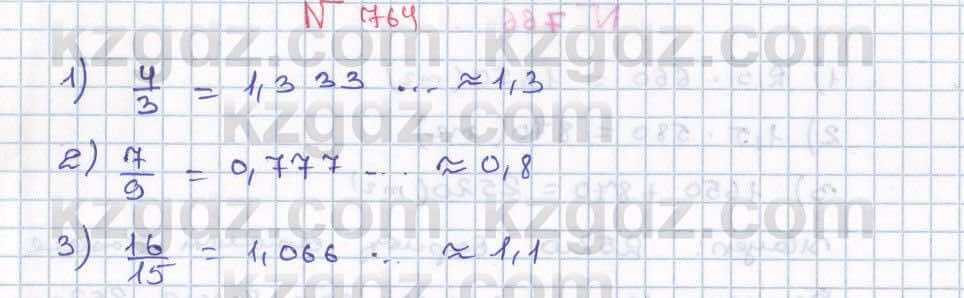 № 764
1) 4/3 = 1,333 ... ≈ 1,3
2) 7/9 = 0,777 ... ≈ 0,8
3) 16/15 = 1,066 ... ≈ 1,1
kzgdz.com kzgdz.com
kzgdz.com
kzgdz.com kzgdz.com